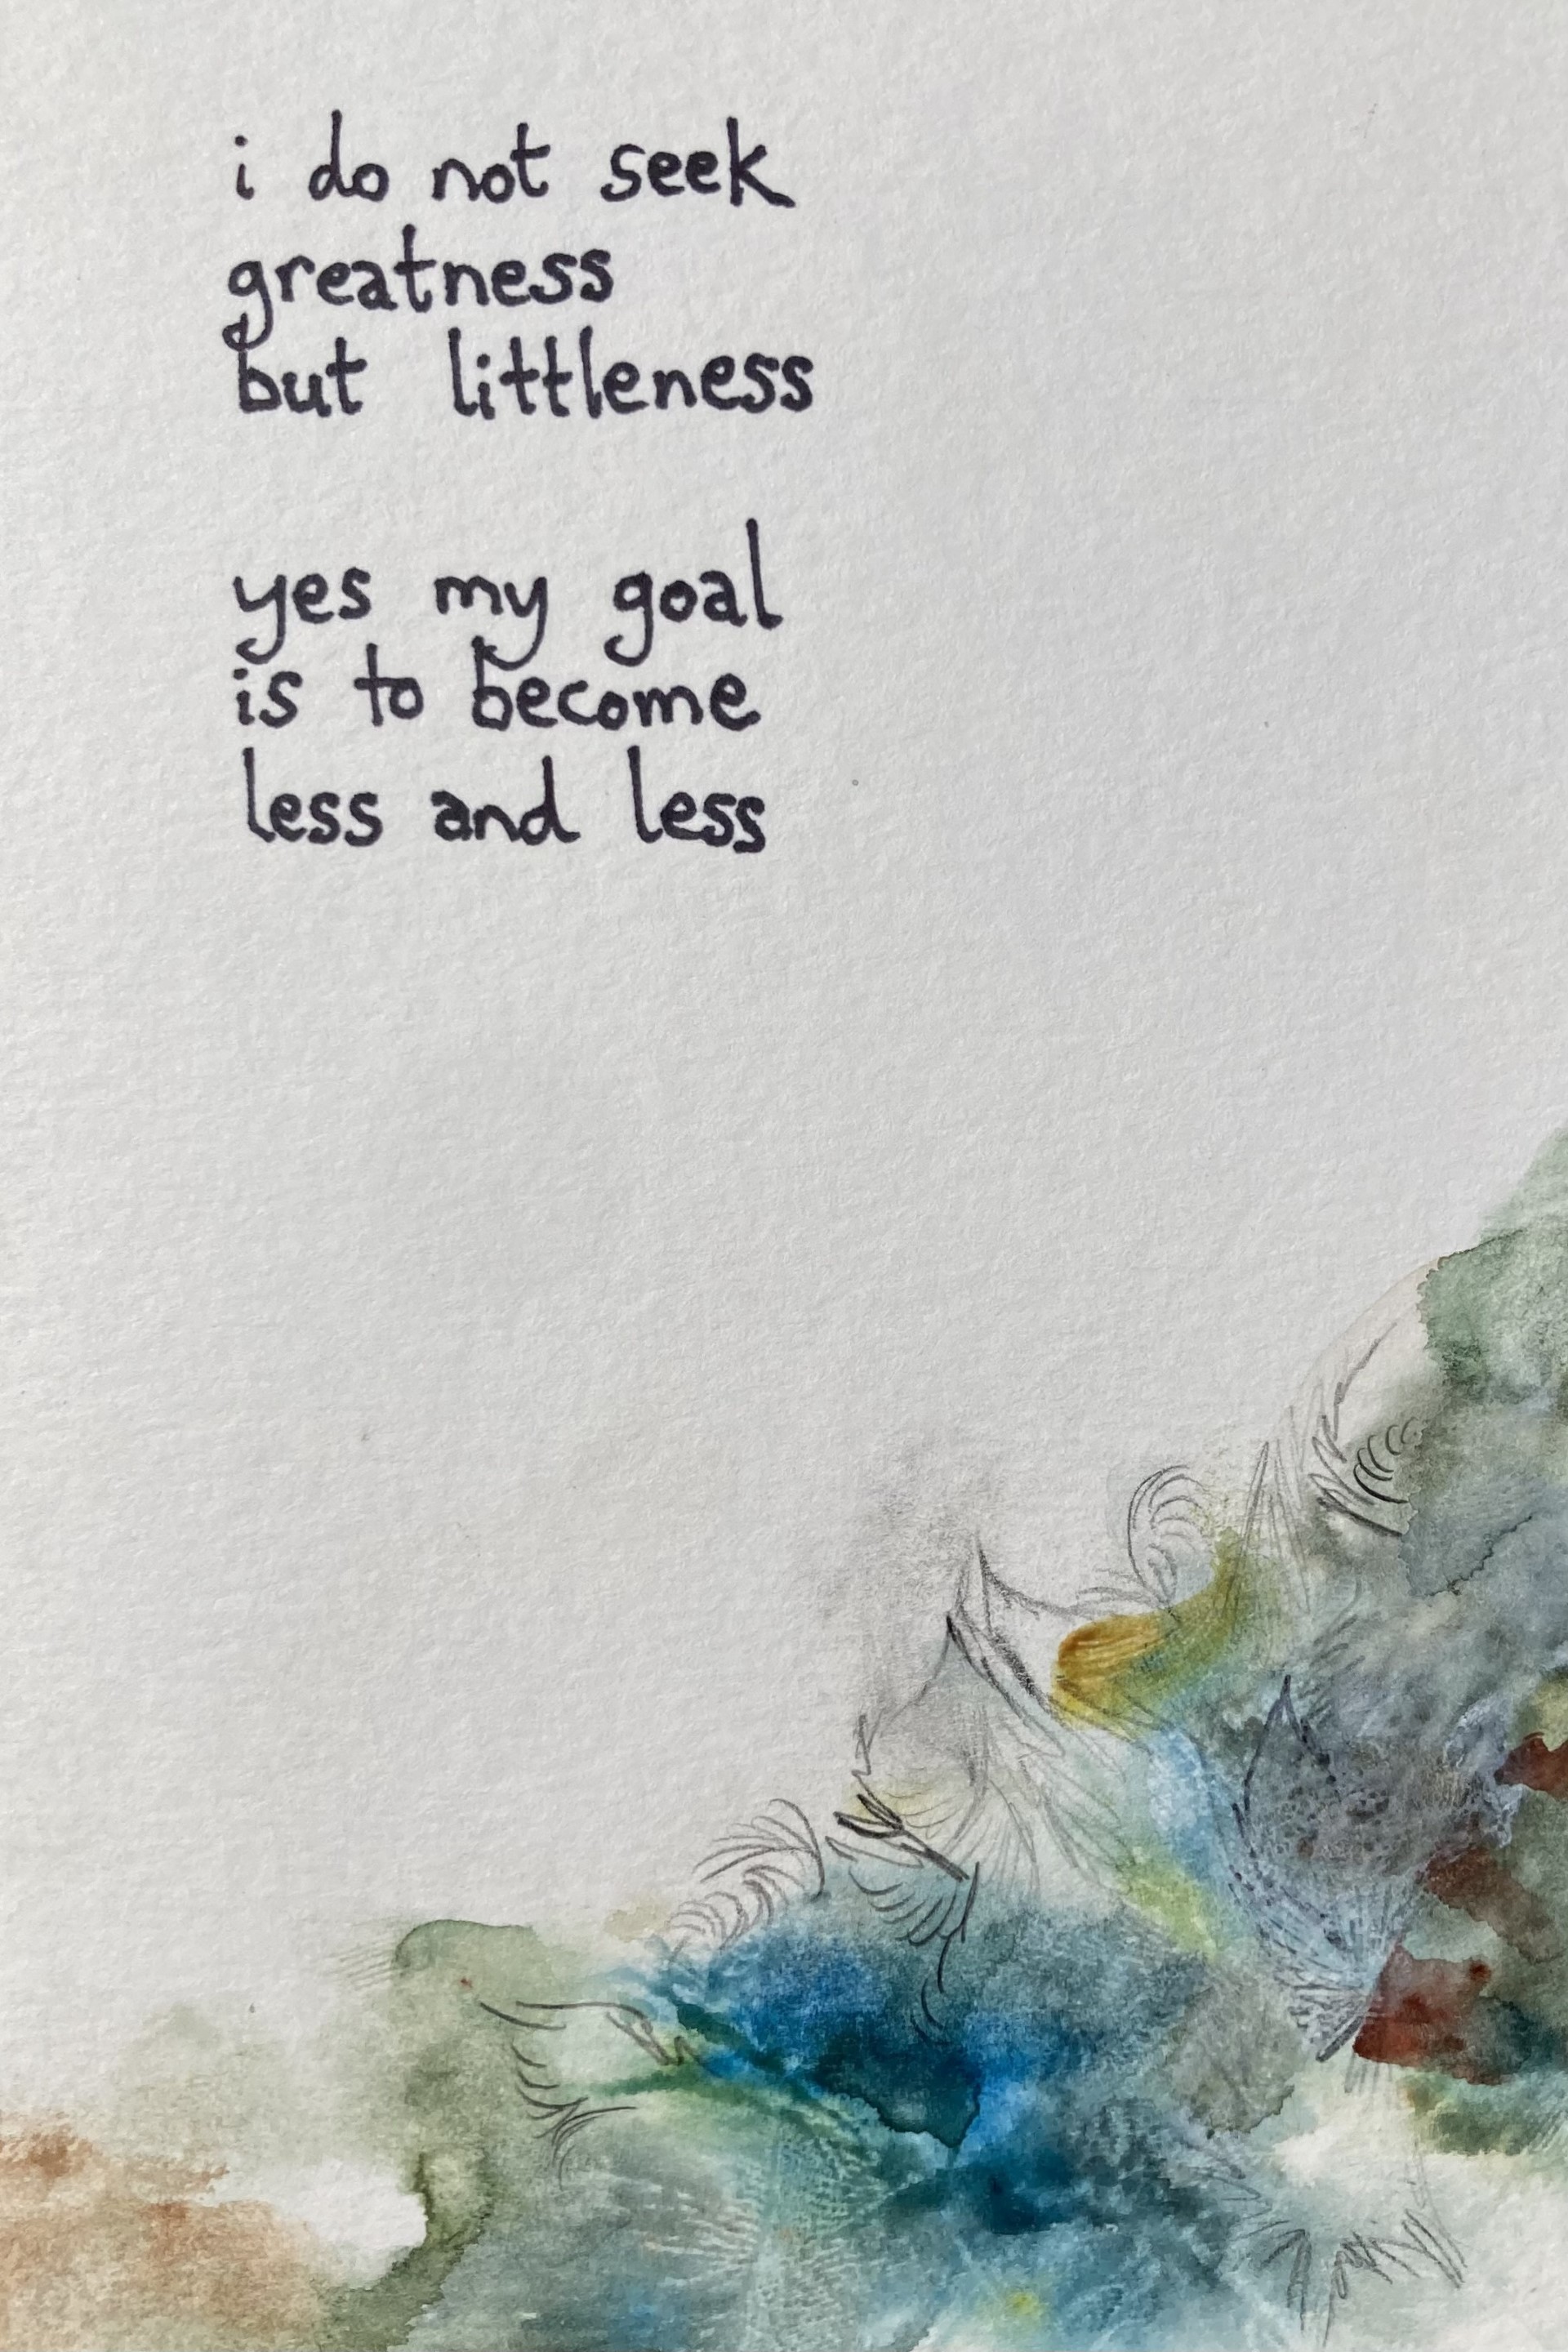 i do not seek
greatness
but littleness
yes my goal
is to become
less and less